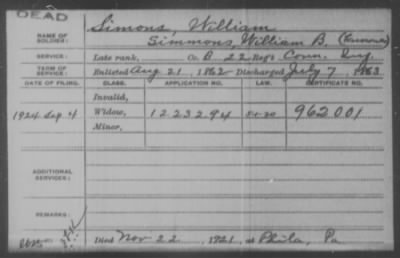 DEAD
Simons, William
NAME OF SOLDIER: Simmons, William B.
SERVICE: Late rank, Co. B 22 Reg't Conn. Inf.
TERM OF SERVICE: Enlisted Aug 21, 1862 Discharged July 7, 1863
DATE OF FILING. CLASS. APPLICATION NO. LAW. CERTIFICATE NO.
Invalid,
1924 Sep 4 Widow, 1223294 962001
Minor,
ADDITIONAL SERVICES:
REMARKS:
Died Nov 22, 1921, at Phila, Pa